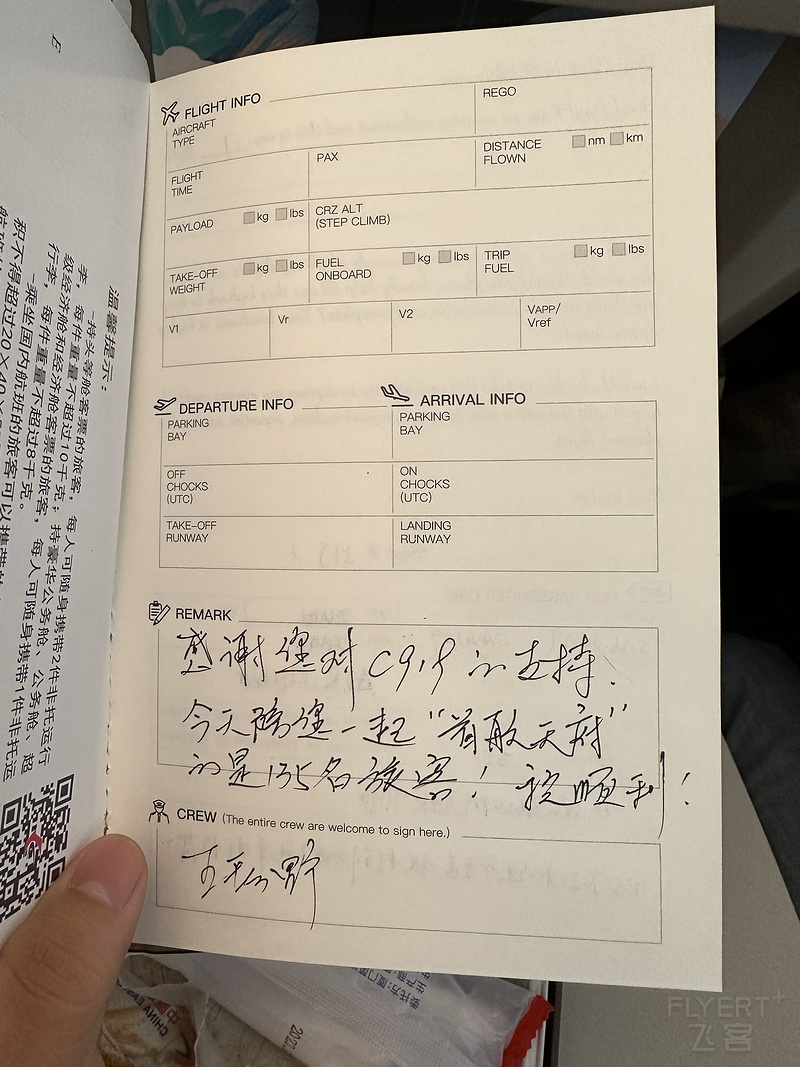 FLIGHT INFO
AIRCRAFT TYPE
REGO
FLIGHT TIME
PAX
DISTANCE FLOWN
nm km
PAYLOAD
kg lbs
CRZ ALT (STEP CLIMB)
TAKE-OFF WEIGHT
kg lbs
FUEL ONBOARD
kg lbs
TRIP FUEL
kg lbs
V1
Vr
V2
VAPP/ Vref
DEPARTURE INFO
ARRIVAL INFO
PARKING BAY
PARKING BAY
OFF CHOCKS (UTC)
ON CHOCKS (UTC)
TAKE-OFF RUNWAY
LANDING RUNWAY
REMARK
感谢您对C919的支持！
今天陪您一起“首敢天府”
的是135名旅客！祝顺利！
CREW (The entire crew are welcome to sign here.)
温馨提示：
-持头等舱客票的旅客，每人可随身携带2件非托运行
李，每件重量不超过10千克；持豪华公务舱、公务舱、超
级经济舱和经济舱客票的旅客，每人可随身携带1件非托运
行李，每件重量不超过8千克。
-乘坐国内航班的旅客可以携带
积不得超过20×40×
CHINA EAS
FLYERT+
飞客